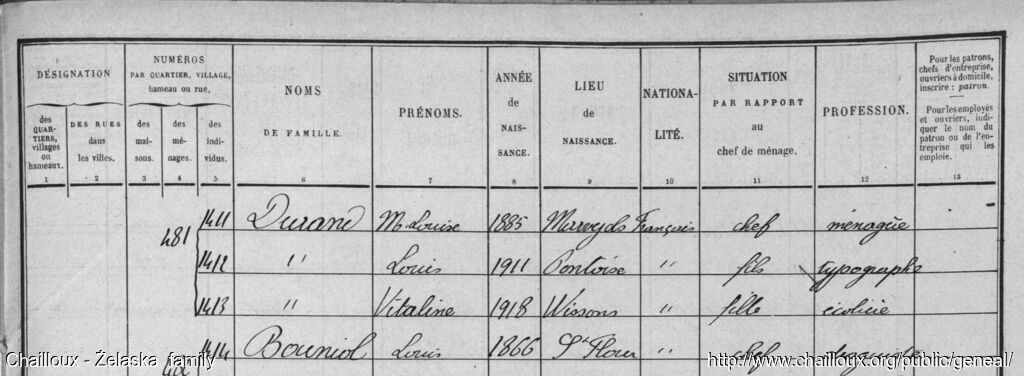 DÉSIGNATION
NUMÉROS
PAR QUARTIER, VILLAGE,
hameau ou rue,
NOMS
DE FAMILLE.
PRÉNOMS.
ANNÉE
de
NAIS-
SANCE.
LIEU
de
NAISSANCE.
NATIONA-
LITÉ.
SITUATION
PAR RAPPORT
au
chef de ménage.
PROFESSION.
Pour les patrons,
chefs d'entreprise,
ouvriers à domicile,
inscrire : patron.
Pour les employés
et ouvriers, indi-
quer le nom du
patron ou de l'en-
treprise qui les
emploie.
des
QUAR-
TIERS,
villages
ou
hameaux.
DES RUES
dans
les villes.
des
mai-
sons.
des
mé-
nages.
des
indi-
vidus.
1 2 3 4 5 6 7 8 9 10 11 12 13
481 1411 Durand M. Louise 1885 Marvejols Français chef ménagère
1412 " Louis 1911 Pontoise " fils typographe
1413 " Vitaline 1918 Wissons " fille écolière
1414 Bouniol Louis 1866 St Flour " chef
482
Chailloux - Żelaska family
http://www.chailloux.org/public/geneal/